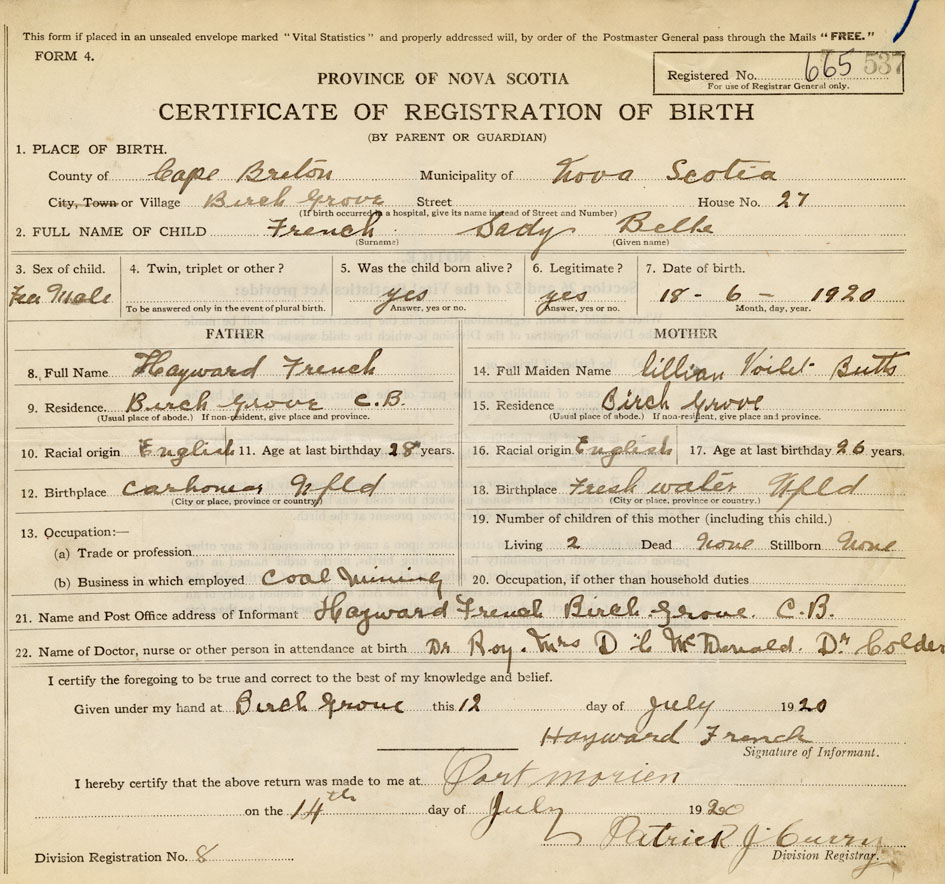 This form if placed in an unsealed envelope marked "Vital Statistics" and properly addressed will, by order of the Postmaster General pass through the Mails "FREE."
FORM 4.
Registered No. 665 537
For use of Registrar General only.
PROVINCE OF NOVA SCOTIA
CERTIFICATE OF REGISTRATION OF BIRTH
(BY PARENT OR GUARDIAN)
1. PLACE OF BIRTH.
County of Cape Breton Municipality of Nova Scotia
City, Town or Village Birch Grove Street House No. 27
(If birth occurred in a hospital, give its name instead of Street and Number)
2. FULL NAME OF CHILD French Sady Belle
(Surname) (Given name)
3. Sex of child. 4. Twin, triplet or other? 5. Was the child born alive? 6. Legitimate? 7. Date of birth.
Fee Male yes yes 18 - 6 - 1920
To be answered only in the event of plural birth. Answer, yes or no. Answer, yes or no. Month, day, year.
FATHER MOTHER
8. Full Name Hayward French 14. Full Maiden Name lillian Voilet Butts
9. Residence Birch Grove C.B. 15. Residence Birch Grove
(Usual place of abode.) If non-resident, give place and province. (Usual place of abode.) If non-resident, give place and province.
10. Racial origin English 11. Age at last birthday 28 years. 16. Racial origin English 17. Age at last birthday 26 years.
12. Birthplace Carbonear Nfld 18. Birthplace Fresh water Nfld
(City or place, province or country) (City or place, province or country.)
13. Occupation:— 19. Number of children of this mother (including this child.)
(a) Trade or profession Living 2 Dead None Stillborn None
(b) Business in which employed Coal Mining 20. Occupation, if other than household duties
21. Name and Post Office address of Informant Hayward French Birch Grove. C.B.
22. Name of Doctor, nurse or other person in attendance at birth Dr Roy. Mrs D C McDonald. Dr. Colder
I certify the foregoing to be true and correct to the best of my knowledge and belief.
Given under my hand at Birch Grove this 12 day of July 1920
Hayward French
Signature of Informant.
I hereby certify that the above return was made to me at Port Morien
on the 14th day of July 1920
Patrick J. Curry
Division Registrar.
Division Registration No. 8